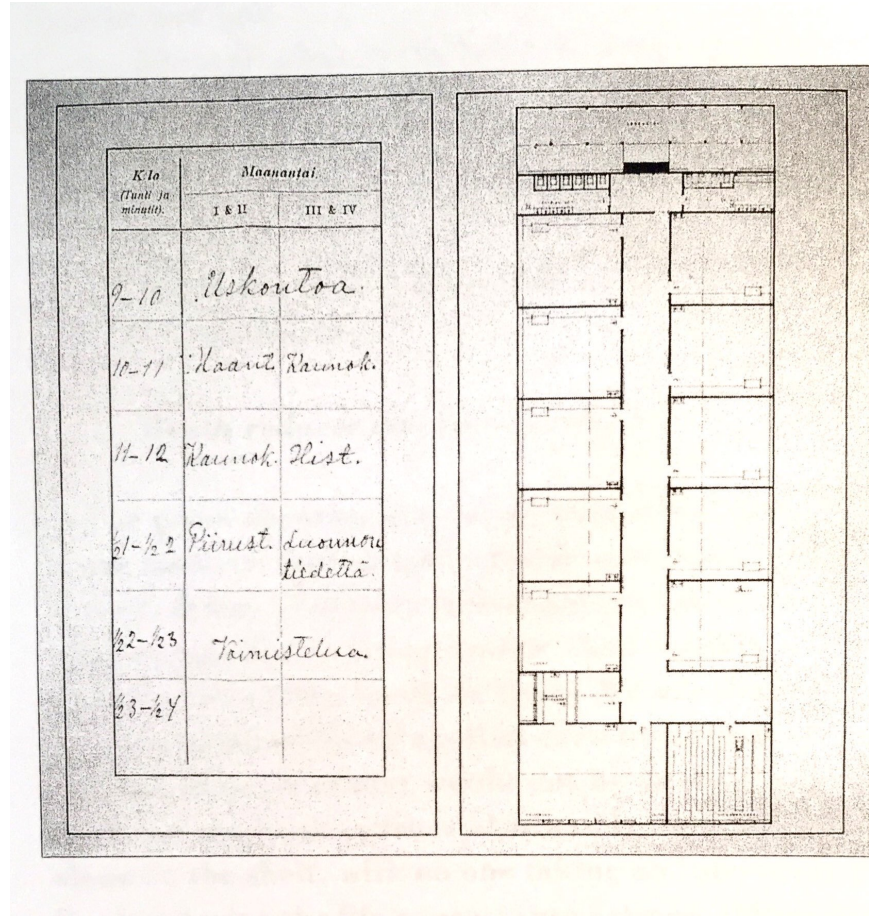 K:lo
(Tunti ja
minutit).
Maanantai
I & II
III & IV
9–10 Uskontoa.
10–11 Maant. Kaunok.
11–12 Kaunok. Hist.
½1–½2 Piirust. Luonnon
tiedettä.
½2–½3 Voimistelua.
½3–½4